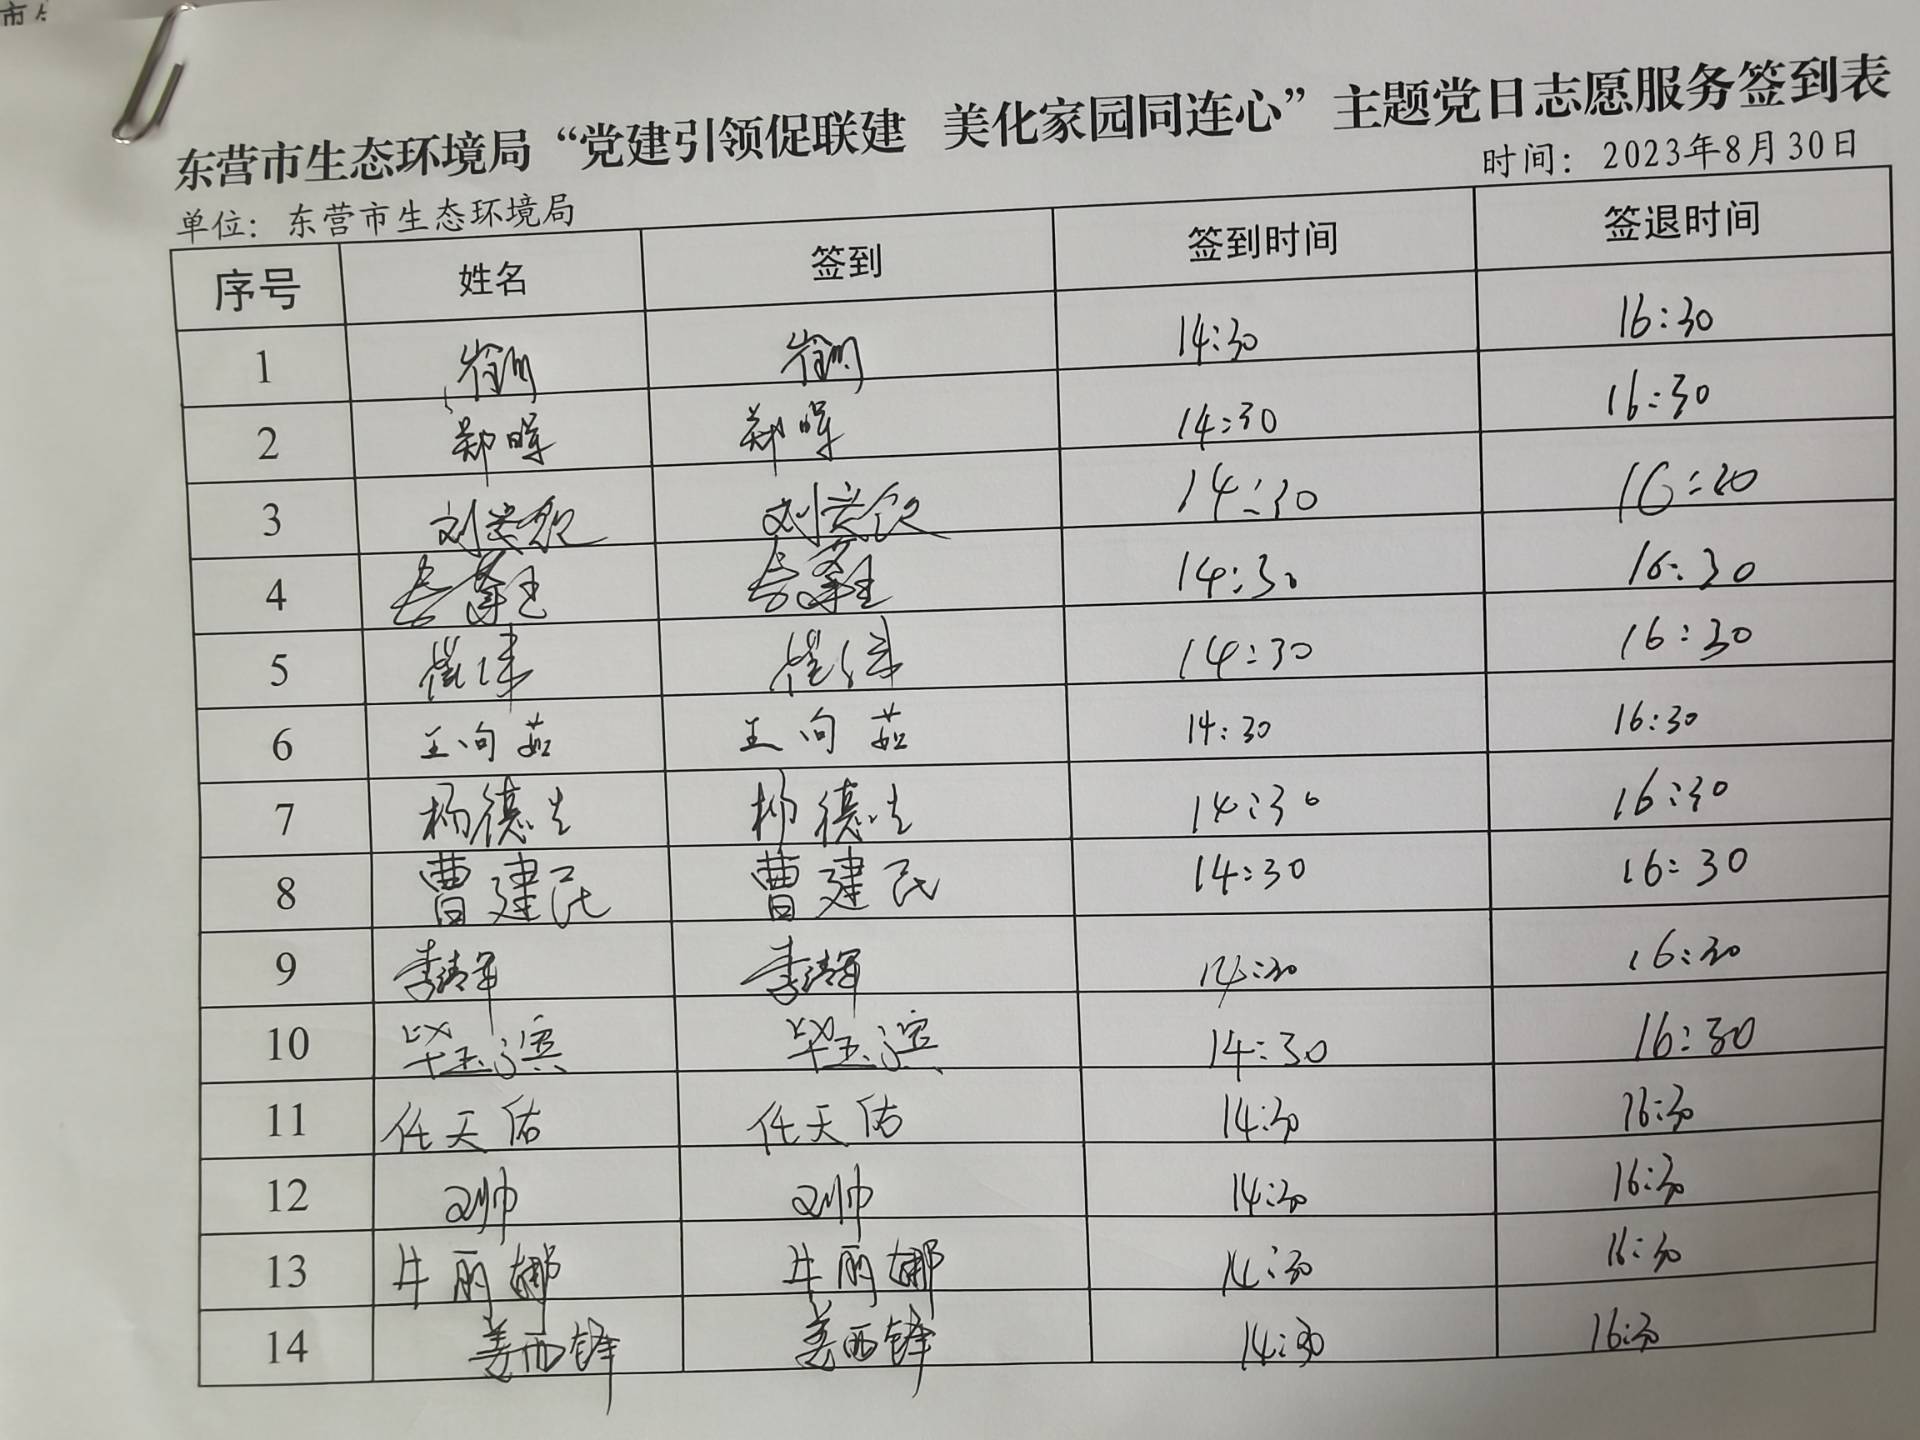 东营市生态环境局“党建引领促联建 美化家园同连心”主题党日志愿服务签到表
时间：2023年8月30日
单位：东营市生态环境局
序号 姓名 签到 签到时间 签退时间
1 14:30 16:30
2 郑晖 郑晖 14:30 16:30
3 14:30 16:20
4 14:30 16:30
5 14:30 16:30
6 王向茹 王向茹 14:30 16:30
7 杨德生 杨德生 14:30 16:30
8 曹建民 曹建民 14:30 16:30
9 李清军 李清军 14:30 16:30
10 毕玉滨 毕玉滨 14:30 16:30
11 任天佑 任天佑 14:30 16:30
12 14:30 16:30
13 牛丽娜 牛丽娜 14:30 16:30
14 姜西锋 姜西锋 14:30 16:30